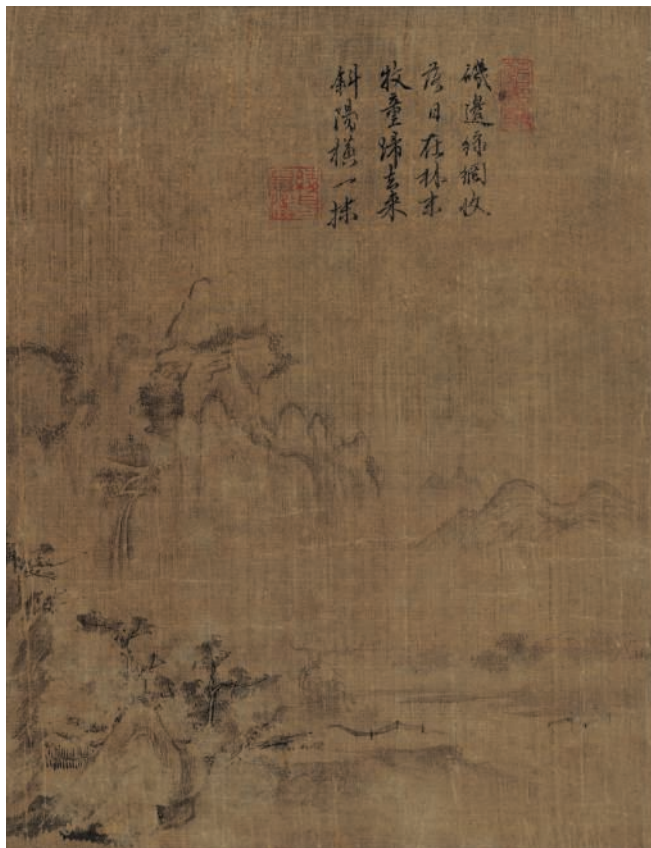 磯邊綠網收
落日在林末
牧童歸去來
斜陽橫一抹